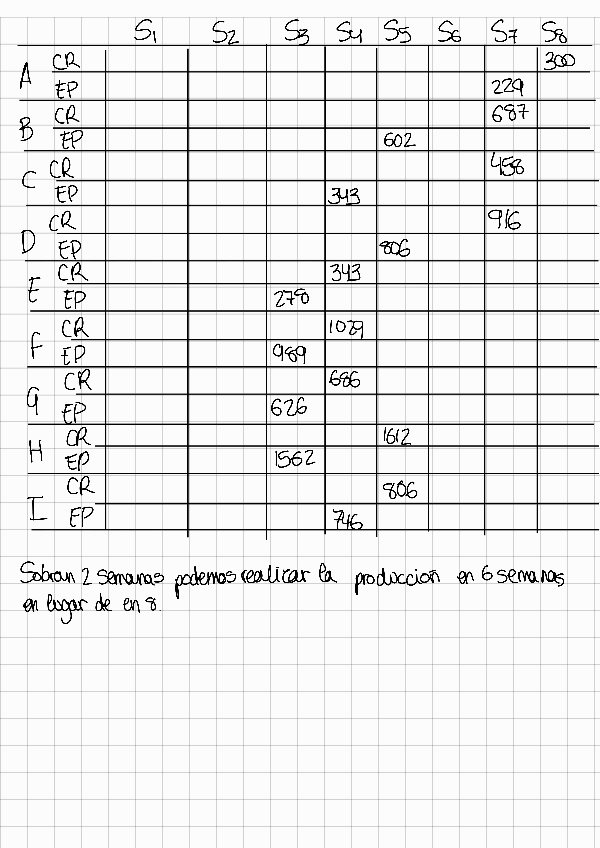 S1 S2 S3 S4 S5 S6 S7 S8
A CR 300
EP 229
B CR 687
EP 602
C CR 458
EP 343
D CR 916
EP 806
E CR 343
EP 278
F CR 1029
EP 989
G CR 686
EP 626
H CR 1612
EP 1562
I CR 806
EP 746
Sobran 2 semanas podemos realizar la produccion en 6 semanas
en lugar de en 8.